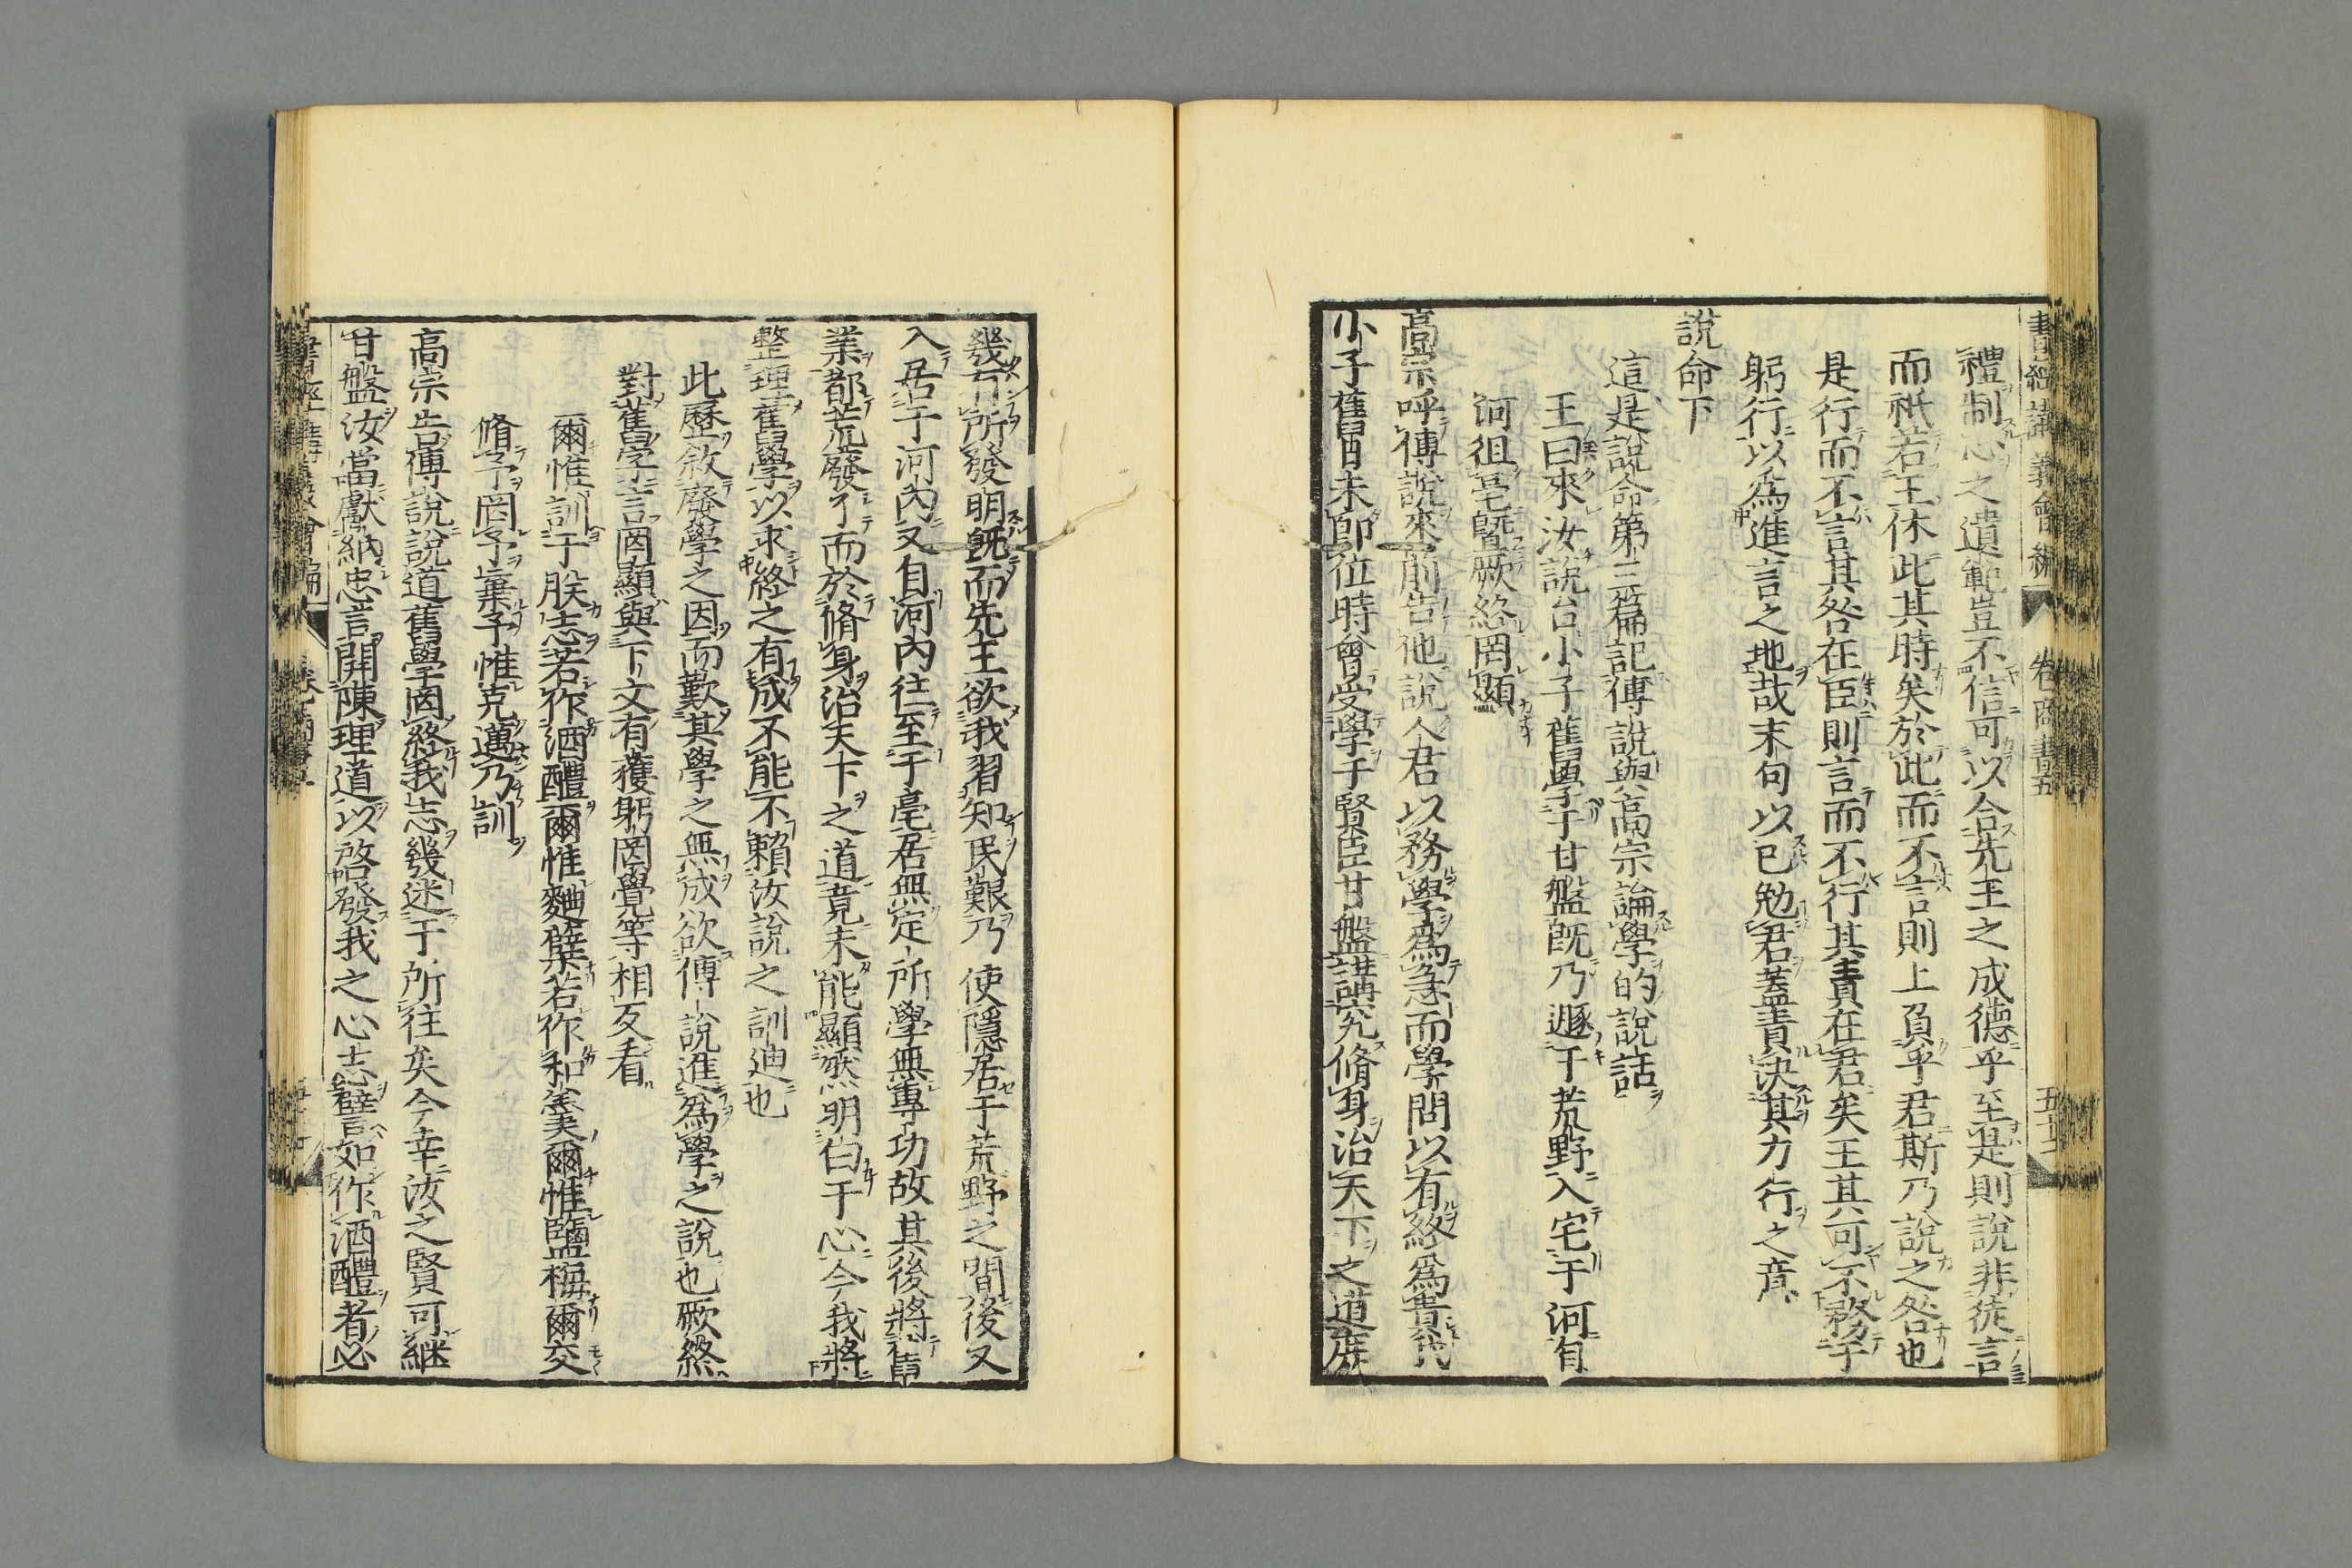 書經講義會編 卷 商書五 五十二
禮制心之遺範豈不信可以合先王之成德乎至是則說非徒言
而祇若王休此其時矣於此而不言則上負乎君斯乃說之咎也
是行而不言其咎在臣則言而不行其責在君矣王其可不務于
躬行以爲進言之地哉末句以已勉君蓋責決其力行之意
說命下
這是說命第三篇記傅說與高宗論學的說話
王曰來汝說台小子舊學于甘盤旣乃遯于荒野入宅于河自
河徂亳曁厥終罔顯
高宗呼傅說來前告他說人君以務學爲急而學問以有終爲貴我
小子舊日未卽位時曾受學于賢臣甘盤講究脩身治天下之道庶
幾有所發明旣而先王欲我習知民艱乃使隱居于荒野之間後又
入居于河內又自河內往至于亳居無定所學無專功故其後將舊
業都荒廢了而於脩身治天下之道竟未能顯然明白于心今我將
整理舊學以求終之有成不能不賴汝說之訓迪也
此歷敘廢學之因而歎其學之無成欲傅說進爲學之說也厥終
對舊學言罔顯與下文有獲躬罔覺等相反看
爾惟訓于朕志若作酒醴爾惟麯糵若作和羹爾惟鹽梅爾交
脩予罔予棄予惟克邁乃訓
高宗告傅說說道舊學罔終我志幾迷于所往矣今幸汝之賢可繼
甘盤汝當獻納忠言開陳理道以啓發我之心志譬如作酒醴者必
書經講義會編